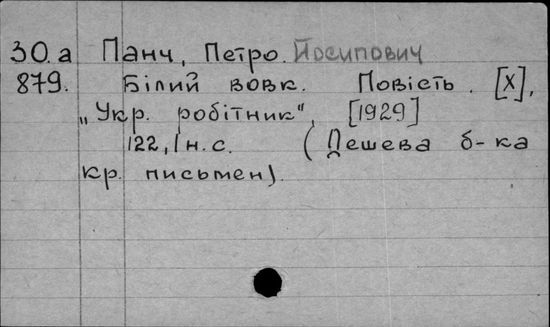 30.а Панч, Петро. Йосипович
879. Білий вовк. Повість. [Х],
„Укр. робітник", [1929]
122,1 н.с. (Дешева б-ка
кр. письмен).